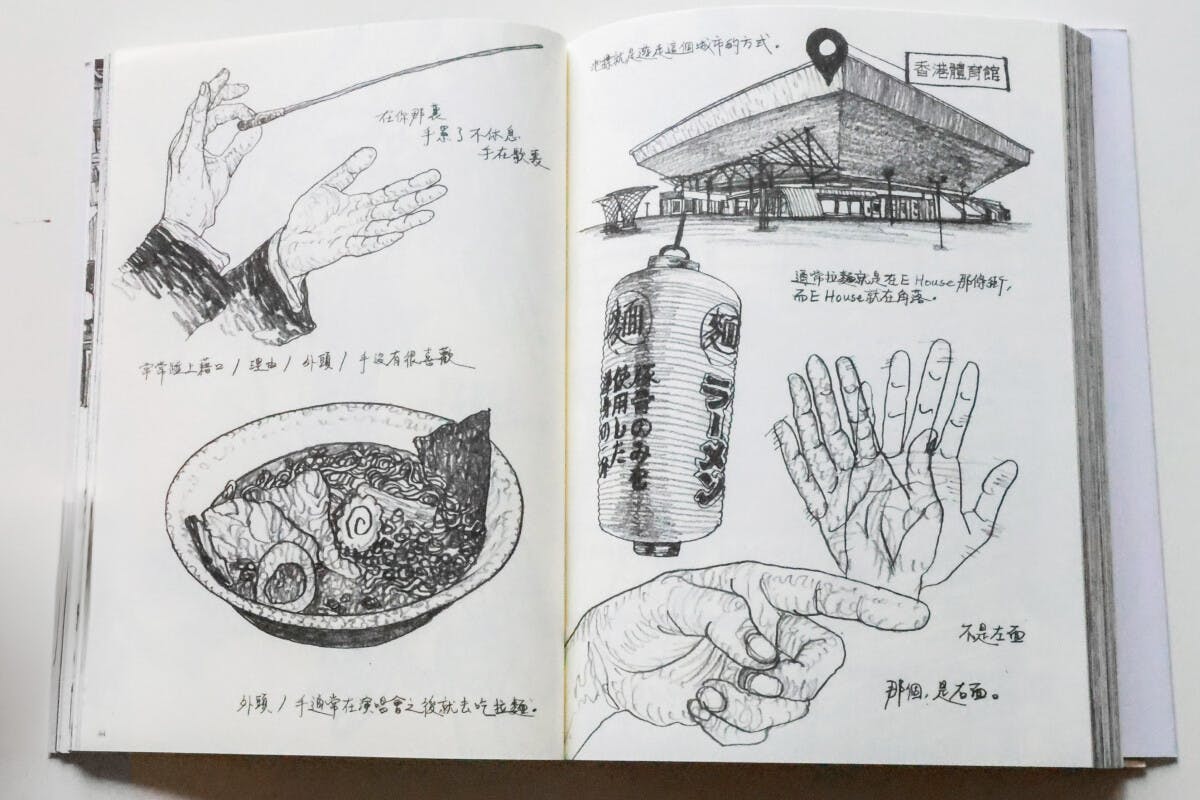 在你那裏
手累了不休息
手在歌裏
常常陸上藉口 / 理由 / 外頭 / 手沒有很喜歡
外頭 / 手通常在演唱會之後就去吃拉麵。
44
就是遊走這個城市的方式。
香港體育館
通常拉麵就是在E House那條街,
而E House就在角落。
麵
麵
ラーメン
豚骨のみを
使用した
不是左面
那個,是右面。